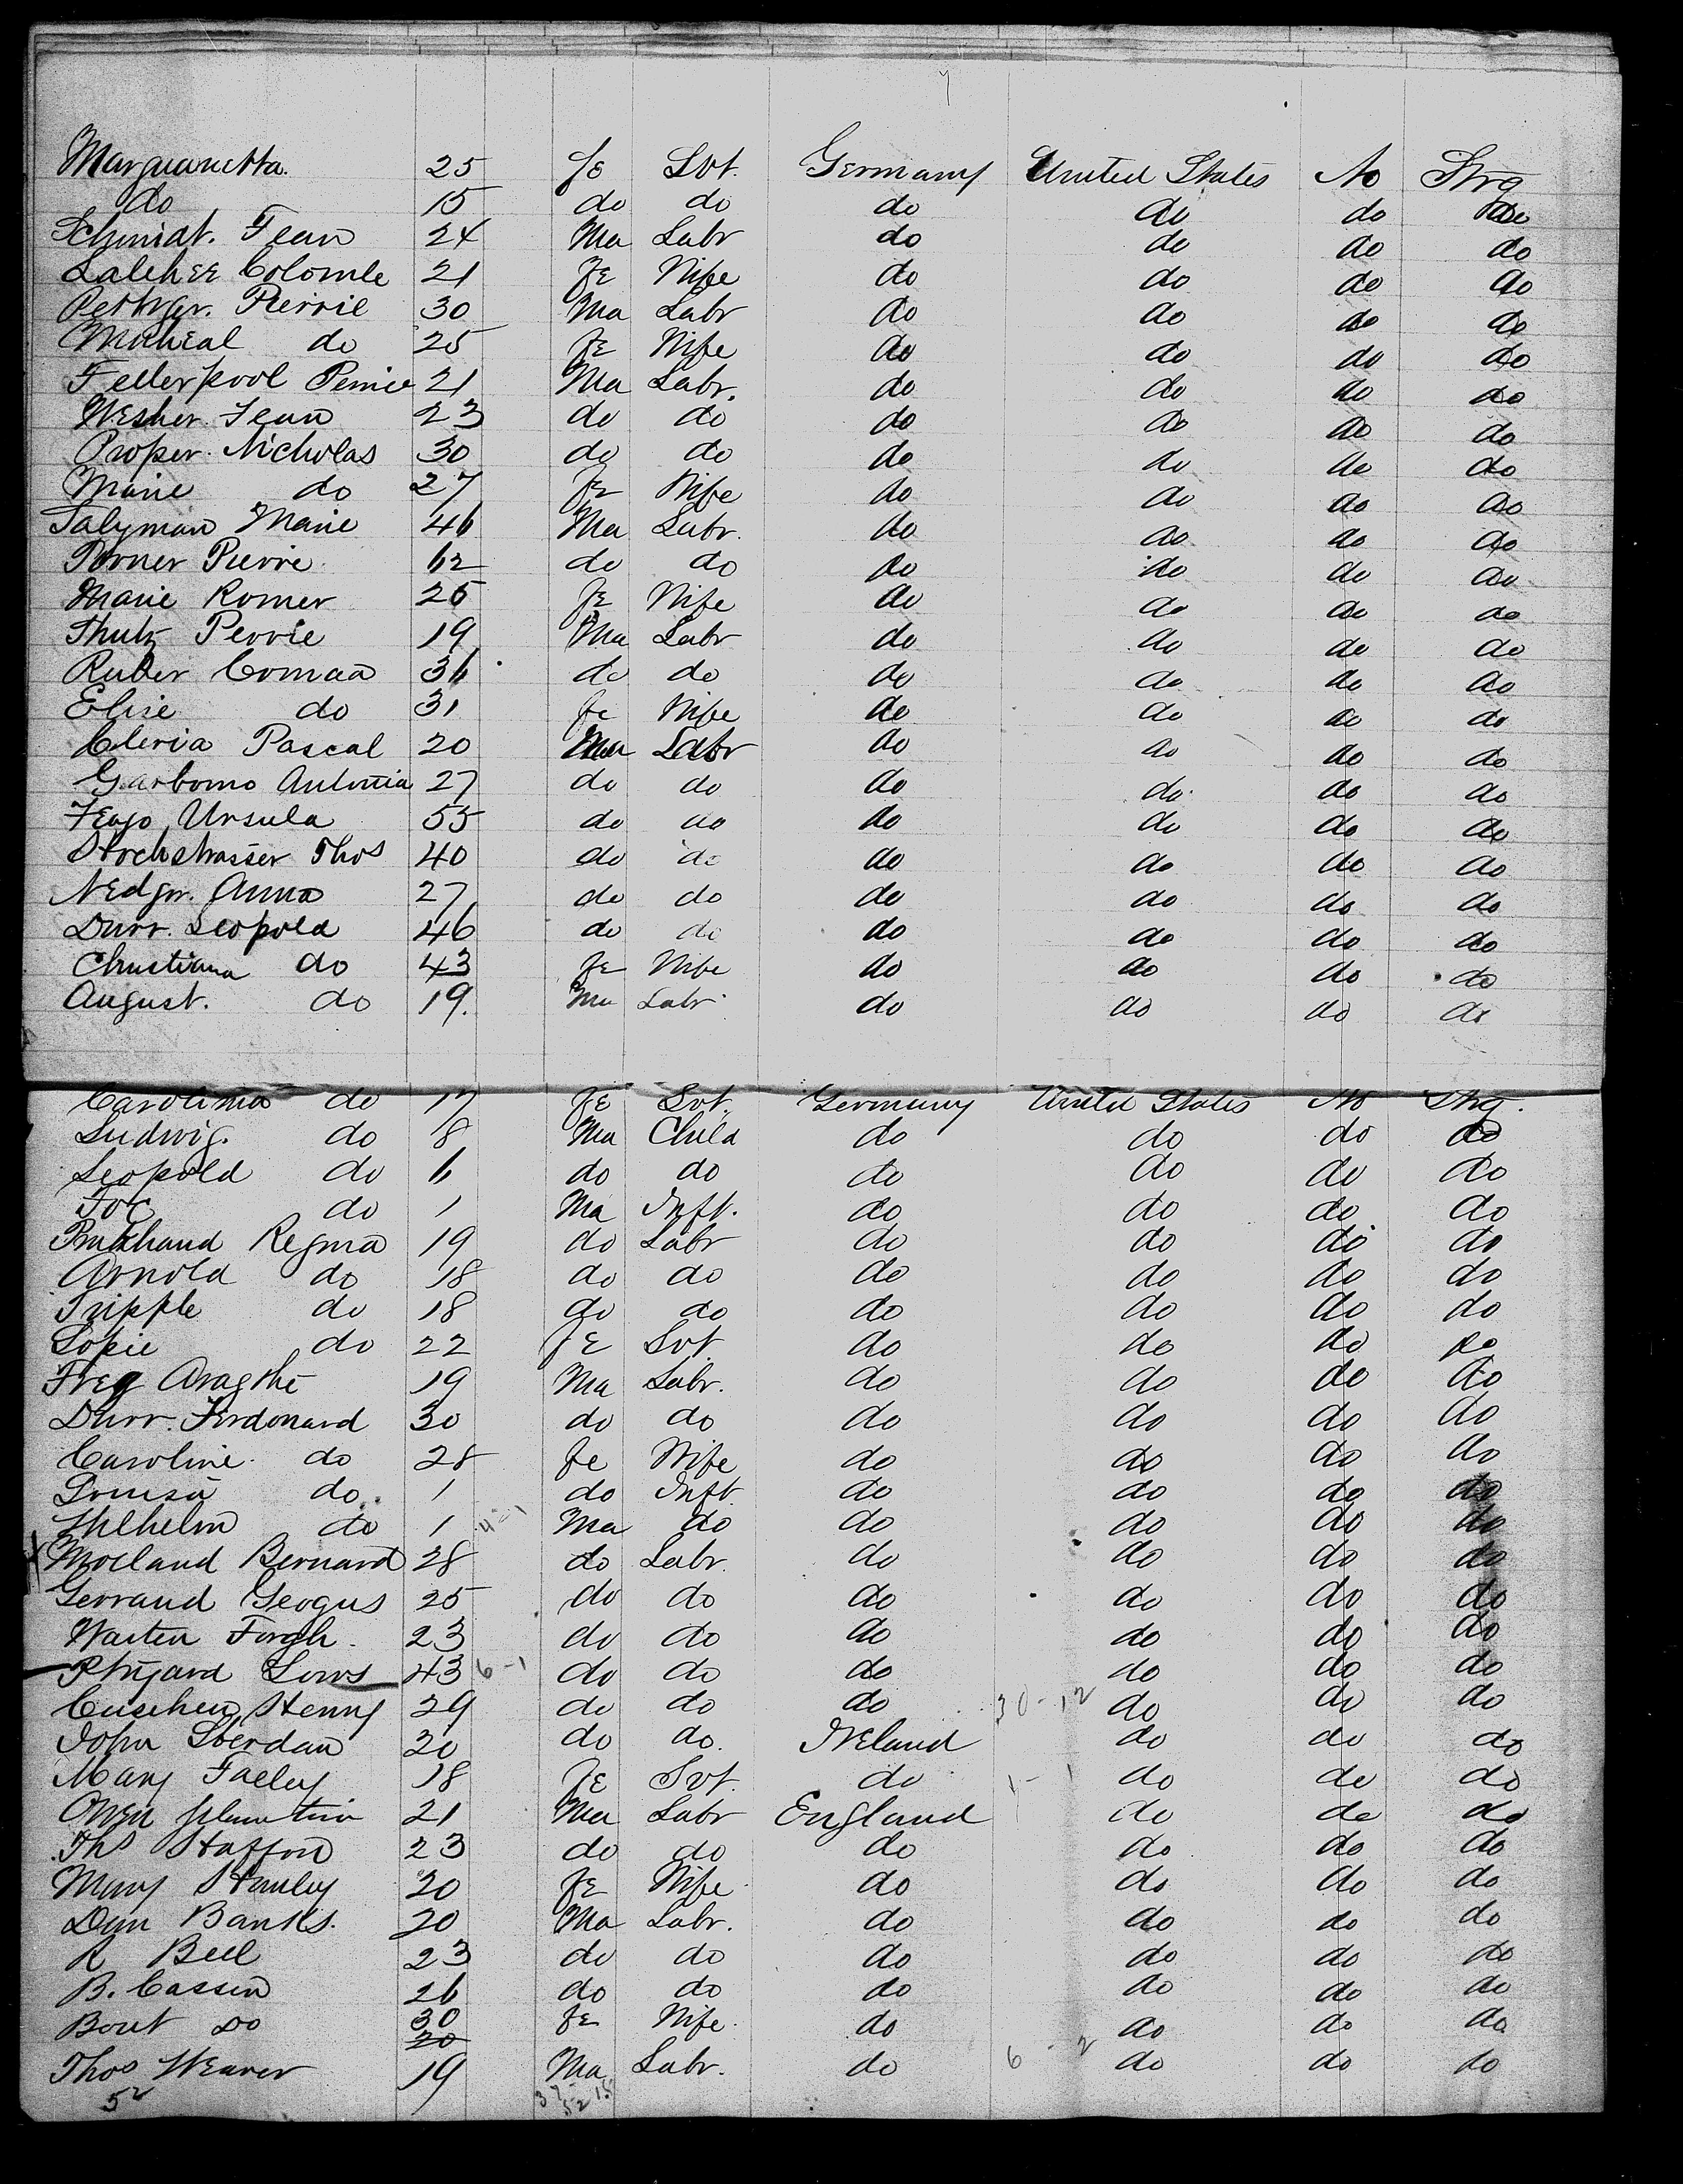 Marguaretta. 25 fe Svt. Germany United States No Strg
do 15 do do do do do do
Schmidt. Jean 24 Ma Labr do do do do
Lalehee Colomle 21 fe Wife do do do do
Pettger. Pierrie 30 Ma Labr do do do do
Micheal do 25 fe Wife do do do do
Fellerpool Perrice 21 Ma Labr. do do do do
Wesher. Jean 23 do do do do do do
Proper. Nicholas 30 do do do do do do
Marie do 27 fe Wife do do do do
Salyman Marie 46 Ma Labr. do do do do
Porner Pierre. 62 do do do do do do
Marie Romer 25 fe Wife do do do do
Thulz Perrie 19 Ma Labr do do do do
Ruber Comaa 36 do do do do do do
Elise do 31 fe Wife do do do do
Cleria Pascal 20 Ma Labr do do do do
Garbomo Antonia 27 do do do do do do
Ursula 55 do do do do do do
Hochstrasser Thos 40 do do do do do do
Nedgr. Anna 27 do do do do do do
Durr. Leopold 46 do do do do do do
Christiana do 43 fe Wife do do do do
August. do 19. Ma Labr do do do do
Carolima do 17 fe Svt. Germany United States No Strg.
Ludwig. do 8 Ma Child do do do do
Leopold do 6 do do do do do do
Joc do 1 Ma Inft. do do do do
Regma 19 do Labr do do do do
Arnold do 18 do do do do do do
Tripple do 18 do do do do do do
Sopie do 22 fe Svt. do do do do
Frey Aragthe 19 Ma Labr. do do do do
Durr. Ferdonard 30 do do do do do do
Caroline. do 28 fe Wife do do do do
Louisa do 1 do Inft. do do do do
Wilhelm do 1 4-1 Ma do do do do do
X Moeland Bernard 28 do Labr. do do do do
Gerrand Geogus 25 do do do do do do
Warten Forgh. 23 do do do do do do
Phijard Lows 43 6-1 do do do do do do
Cuschen, Henny 29 do do do 30-12 do do do
John Sherdan 20 do do. Ireland do do do
Mary Falley 18 fe Svt. do 1-1 do do do
Owen 21 Ma Labr England do do do
Ths Staffon 23 do do do do do do
Mary Stanley 20 fe Wife do do do do
Dan Banks. 20 Ma Labr. do do do do
R Bell 23 do do do do do do
B. Cassin 26 do do do do do do
Bout do 30 fe Wife do do do do
20
Thos Weaver 19 Ma Labr. do 6-2 do do do
52 37-15
52